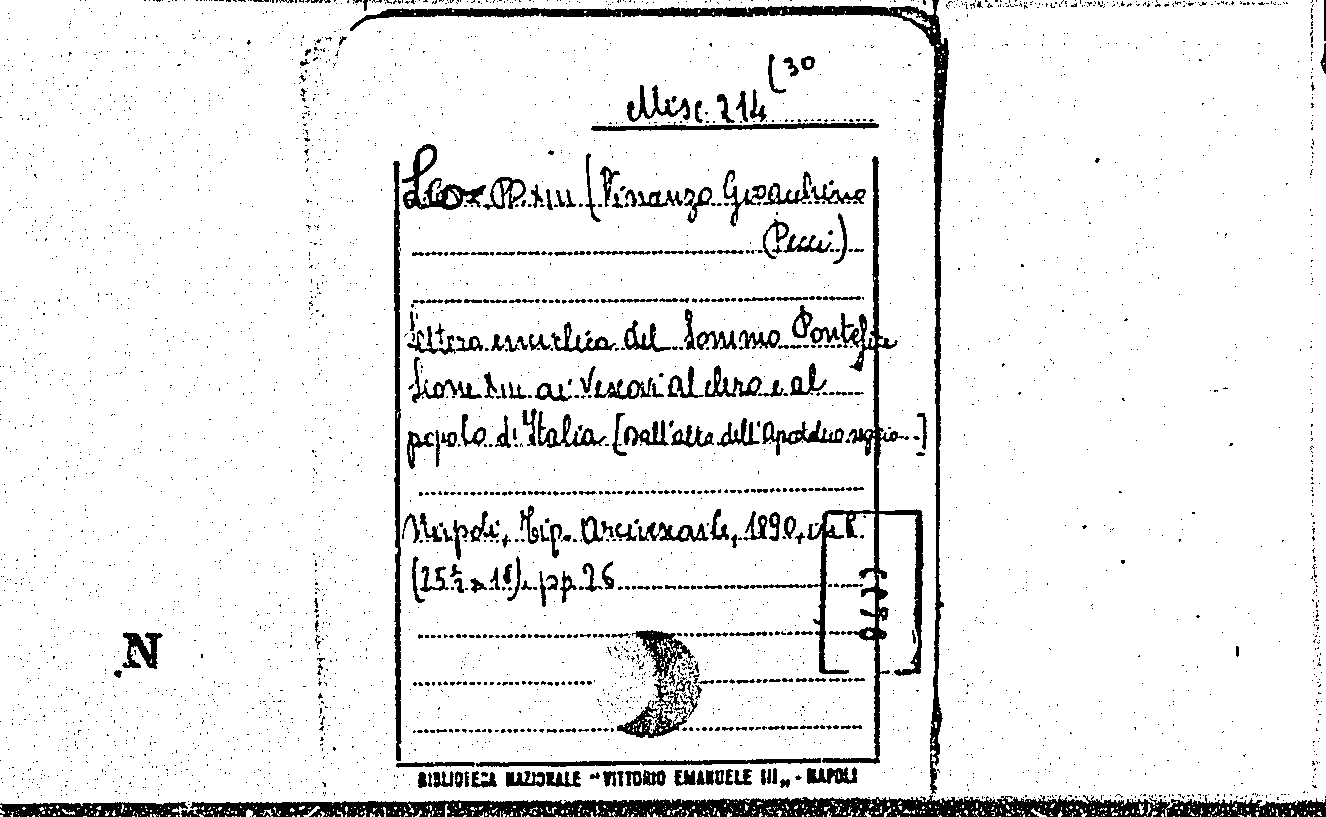 (30
Misc. 214
Leo PP. XIII (Vinanzo Gioacchino
(Pecci)
Lettera enciclica del Sommo Pontefice
Leone XIII ai Vescovi al clero e al
popolo d'Italia [Dall'alto dell'Apostolico seggio...]
Napoli, Tip. Arcivescovile, 1890, in 8.
(25 1/2 x 18), pp. 26
N
BIBLIOTECA NAZIONALE "VITTORIO EMANUELE III„ - NAPOLI